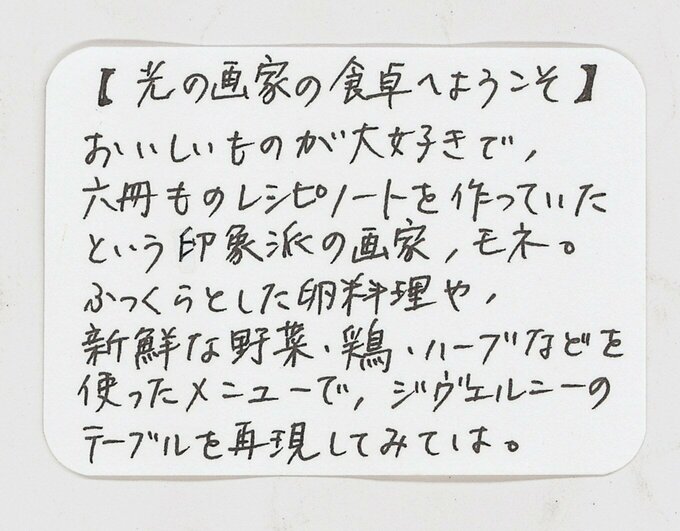 【光の画家の食卓へようこそ】
おいしいものが大好きで,
六冊ものレシピノートを作っていた
という印象派の画家,モネ。
ふっくらとした卵料理や,
新鮮な野菜・鶏・ハーブなどを
使ったメニューで,ジヴェルニーの
テーブルを再現してみては。